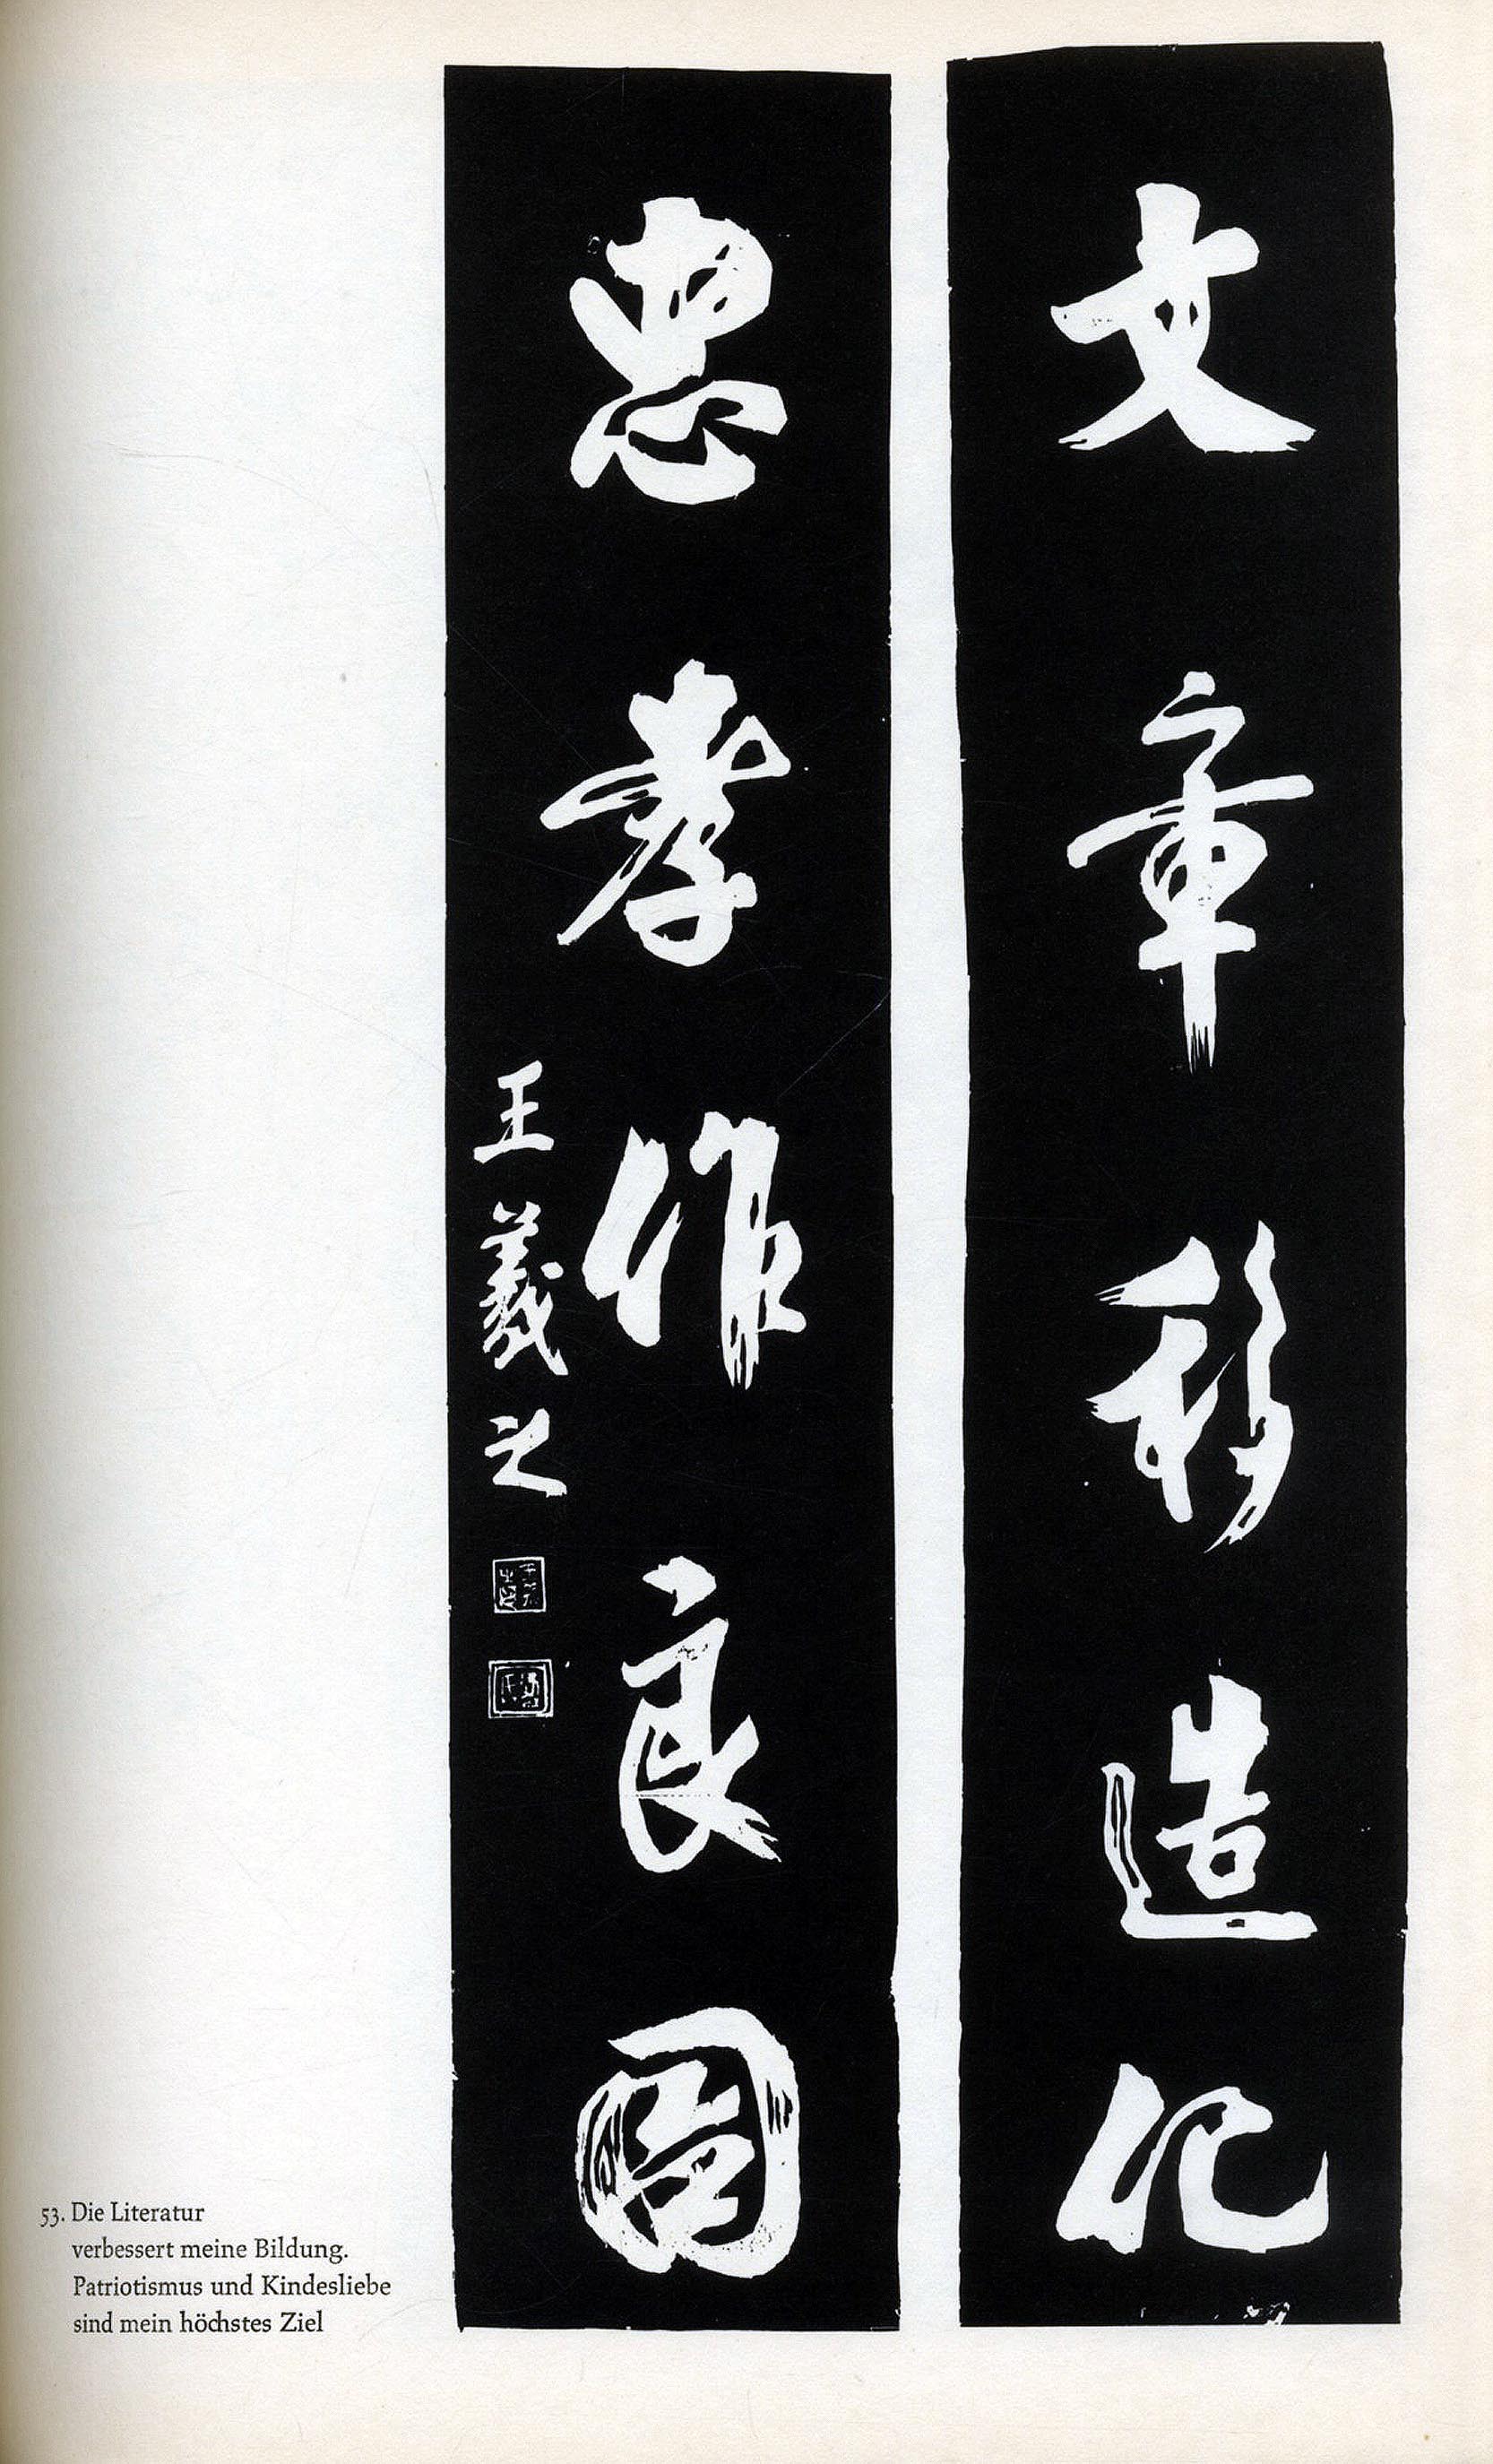 文章移造化
忠孝作良圖
王羲之
53. Die Literatur
verbessert meine Bildung.
Patriotismus und Kindesliebe
sind mein höchstes Ziel